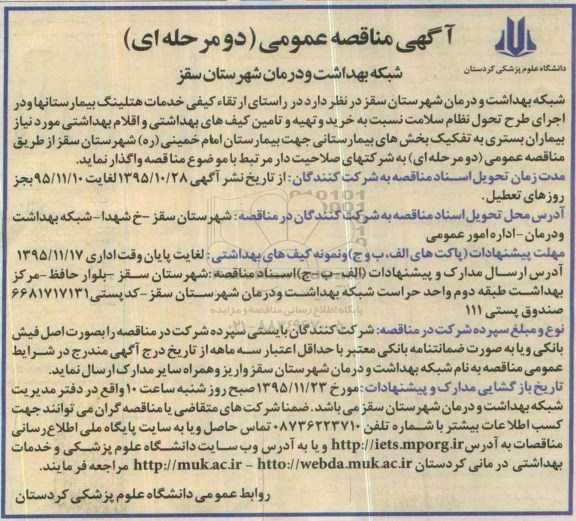 آگهی مناقصه عمومی (دو مرحله ای)
دانشگاه علوم پزشکی کردستان
شبکه بهداشت ودرمان شهرستان سقز
شبکه بهداشت و درمان شهرستان سقز در نظر دارد در راستای ارتقاء کیفی خدمات هتلینگ بیمارستانها ودر
اجرای طرح تحول نظام سلامت نسبت به خرید و تهیه و تامین کیف های بهداشتی و اقلام بهداشتی مورد نیاز
بیماران بستری به تفکیک بخش های بیمارستانی جهت بیمارستان امام خمینی (ره) شهرستان سقز از طریق
مناقصه عمومی (دو مرحله ای) به شرکتهای صلاحیت دار مرتبط با موضوع مناقصه واگذار نماید.
مدت زمان تحویل اسناد مناقصه به شرکت کنندگان: از تاریخ نشر آگهی ۱۳۹۵/۱۰/۲۸ لغایت ۹۵/۱۱/۱۰ بجز
روز های تعطیل.
آدرس محل تحویل اسناد مناقصه به شرکت کنندگان در مناقصه: شهرستان سقز -خ شهدا-شبکه بهداشت
ودرمان-اداره امور عمومی
مهلت پیشنهادات (پاکت های الف، ب و ج) ونمونه کیف های بهداشتی: لغایت پایان وقت اداری ۱۳۹۵/۱۱/۱۷
آدرس ارسال مدارک و پیشنهادات (الف-ب-ج) اسناد مناقصه: شهرستان سقز -بلوار حافظ-مرکز
بهداشت طبقه دوم واحد حراست شبکه بهداشت ودرمان شهرستان سقز -کدپستی ۶۶۸۱۷۱۷۱۳۱
صندوق پستی ۱۱۱
نوع و مبلغ سپرده شرکت در مناقصه: شرکت کنندگان بایستی سپرده شرکت در مناقصه را بصورت اصل فیش
بانکی ویا به صورت ضمانتنامه بانکی معتبر با حداقل اعتبار سه ماهه از تاریخ درج آگهی مندرج در شرایط
عمومی مناقصه به نام شبکه بهداشت و درمان شهرستان سقز واریز وهمراه سایر مدارک ارسال نماید.
تاریخ باز گشایی مدارک و پیشنهادات: مورخ ۱۳۹۵/۱۱/۲۳ صبح روز شنبه ساعت ۱۰ واقع در دفتر مدیریت
شبکه بهداشت و درمان شهرستان سقز می باشد. ضمنا شرکت های متقاضی یا مناقصه گران می توانند جهت
کسب اطلاعات بیشتر با شماره تلفن ۰۸۷۳۶۲۲۳۷۱۰ تماس حاصل ویا به سایت پایگاه ملی اطلاع رسانی
مناقصات به آدرس http://iets.mporg.ir و یا به آدرس وب سایت دانشگاه علوم پزشکی و خدمات
بهداشتی درمانی کردستان http://muk.ac.ir - htto://webda.muk.ac.ir مراجعه فرمایند.
روابط عمومی دانشگاه علوم پزشکی کردستان